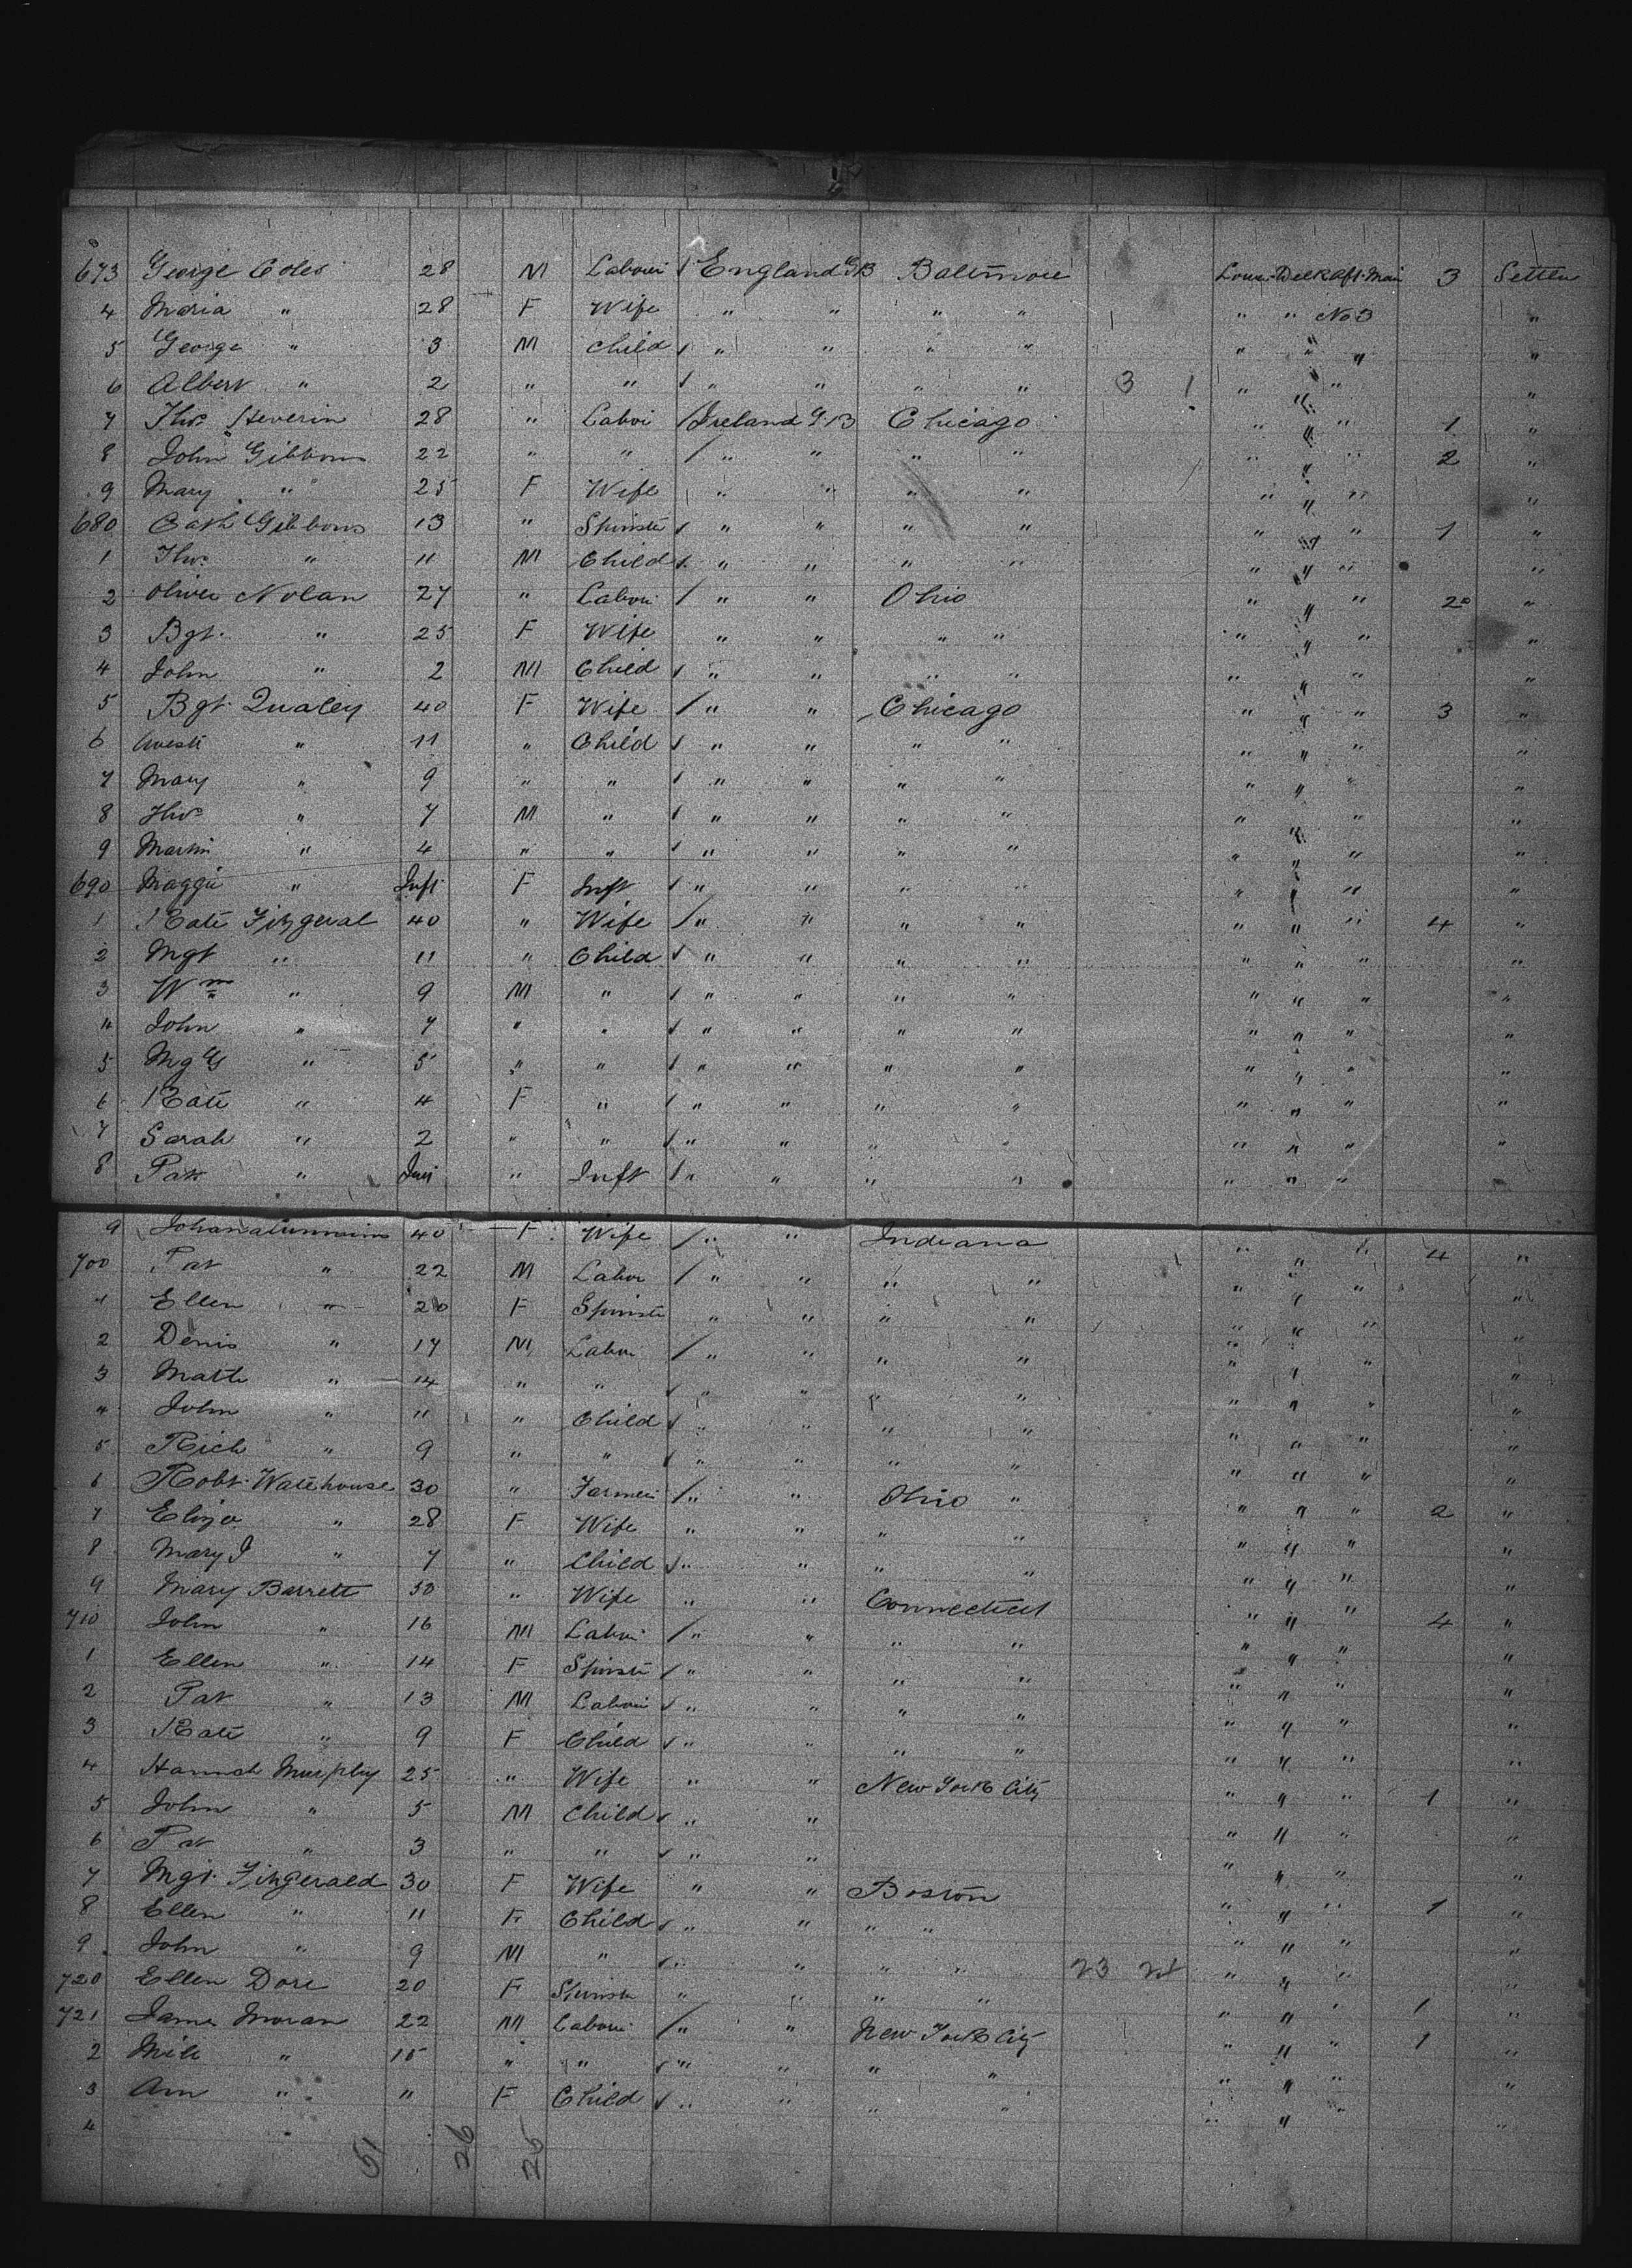 673 George Coles 28 M Labourer England GB Baltimore Lower Deck Aft Main 3 Settler
4 Maria " 28 F Wife " " " " " " No 3 "
5 George " 3 M Child " " " " " " " "
6 Albert " 2 " " " " " " 3 1 " " " "
7 Thos 28 " Labor Ireland G.B Chicago " " " 1 "
8 John Gibbons 22 " " " " " " " " " 2 "
9 Mary " 25 F Wife " " " " " " " "
680 Cath Gibbons 13 " Spinster " " " " " " " 1 "
1 Thos " 11 M Child " " " " " " " "
2 Oliver Nolan 27 " Labor " " Ohio " " " 2 "
3 Bgt. " 25 F Wife " " " " " " " "
4 John " 2 M Child " " " " " " " "
5 Bgt. Qualey 40 F Wife " " Chicago " " " 3 "
6 " 11 " Child " " " " " " " "
7 Mary " 9 " " " " " " " " " "
8 Thos " 7 M " " " " " " " " "
9 Martin " 4 " " " " " " " " " "
690 Maggie " Inft F Inft " " " " " " " "
1 Kate Fitzgeral 40 " Wife " " " " " " " 4 "
2 Mgt " 11 " Child " " " " " " " "
3 Wm " 9 M " " " " " " " " "
4 John " 7 " " " " " " " " " "
5 " 5 " " " " " " " " " "
6 Kate " 4 F " " " " " " " " "
7 Sarah " 2 " " " " " " " " " "
8 Pat " Inft " Inft " " " " " " "
9 Johana Cummins 40 F Wife " " Indiana " " " 4 "
700 Pat " 22 M Labor " " " " " " " "
1 Ellen " 20 F Spinster " " " " " " " "
2 Denis " 17 M Labor " " " " " " " "
3 Matt " 14 " " " " " " " " " "
4 John " 11 " Child " " " " " " " "
5 Rich " 9 " " " " " " " " " "
6 Robt. Watehouse 30 " Farmer " " Ohio " " " " 2 "
7 Eliza " 28 F Wife " " " " " " " "
8 Mary J " 7 " Child " " " " " " " "
9 Mary Barrett 50 " Wife " " Connecticut " " " 4 "
710 John " 16 M Labor " " " " " " " "
1 Ellen " 14 F Spinster " " " " " " " "
2 Pat " 13 M Labour " " " " " " " "
3 Kate " 9 F Child " " " " " " " "
4 Hannah Murphy 25 " Wife " " New York City " " " 1 "
5 John " 5 M Child " " " " " "
6 Pat " 3 " " " " " " " "
7 Mgt. Fitzgerald 30 F Wife " " Boston " " " 1 "
8 Ellen " 11 F Child " " " " " " " "
9 John " 9 M " " " " " 23 " " " "
720 Ellen Dore 20 F Spinster " " " " " " " 1 "
721 James Moran 22 M Labour " " New York City " " " 1 "
2 " 15 " " " " " " " " " "
3 Ann " " F Child " " " " " " " "
4
51 26 25